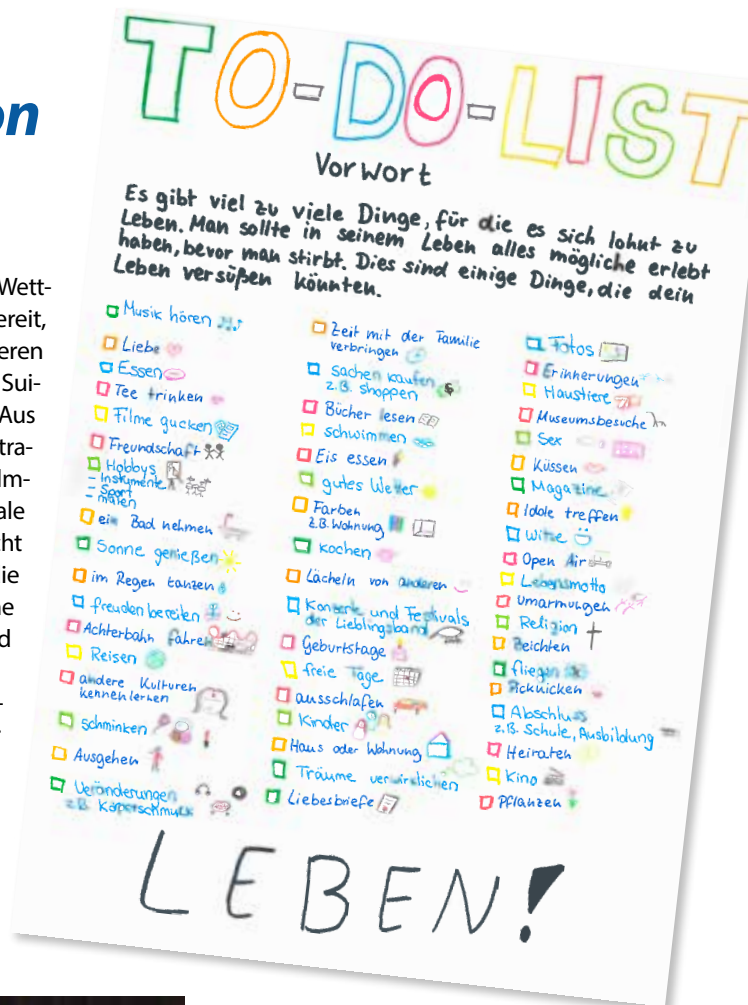 on
Wett-
ereit,
eren
Sui-
Aus
tra-
Im-
ale
cht
ie
ne
d
-
TO-DO-LIST
Vorwort
Es gibt viel zu viele Dinge, für die es sich lohnt zu
Leben. Man sollte in seinem Leben alles mögliche erlebt
haben, bevor man stirbt. Dies sind einige Dinge, die dein
Leben versüßen könnten.
Musik hören
Liebe
Essen
Tee trinken
Filme gucken
Freundschaft
Hobbys
- Instrumente
- Sport
- malen
ein Bad nehmen
Sonne genießen
im Regen tanzen
freuden bereiten
Achterbahn fahren
Reisen
andere Kulturen
kennenlernen
schminken
Ausgehen
Veränderungen
z.B. Körperschmuck
Zeit mit der Familie
verbringen
sachen kaufen
z.B. shoppen
Bücher lesen
schwimmen
Eis essen
gutes Wetter
Farben
z.B. Wohnung
kochen
Lächeln von anderen
Konzerte und Festivals
der Lieblingsband
Geburtstage
freie Tage
ausschlafen
Kinder
Haus oder Wohnung
Träume verwirklichen
Liebesbriefe
Fotos
Erinnerungen
Haustiere
Museumsbesuche
Sex
Küssen
Magazine
Idole treffen
Witze
Open Air
Lebensmotto
Umarmungen
Religion
Beichten
fliegen
Picknicken
Abschluss
z.B. Schule, Ausbildung
Heiraten
Kino
Pflanzen
LEBEN!